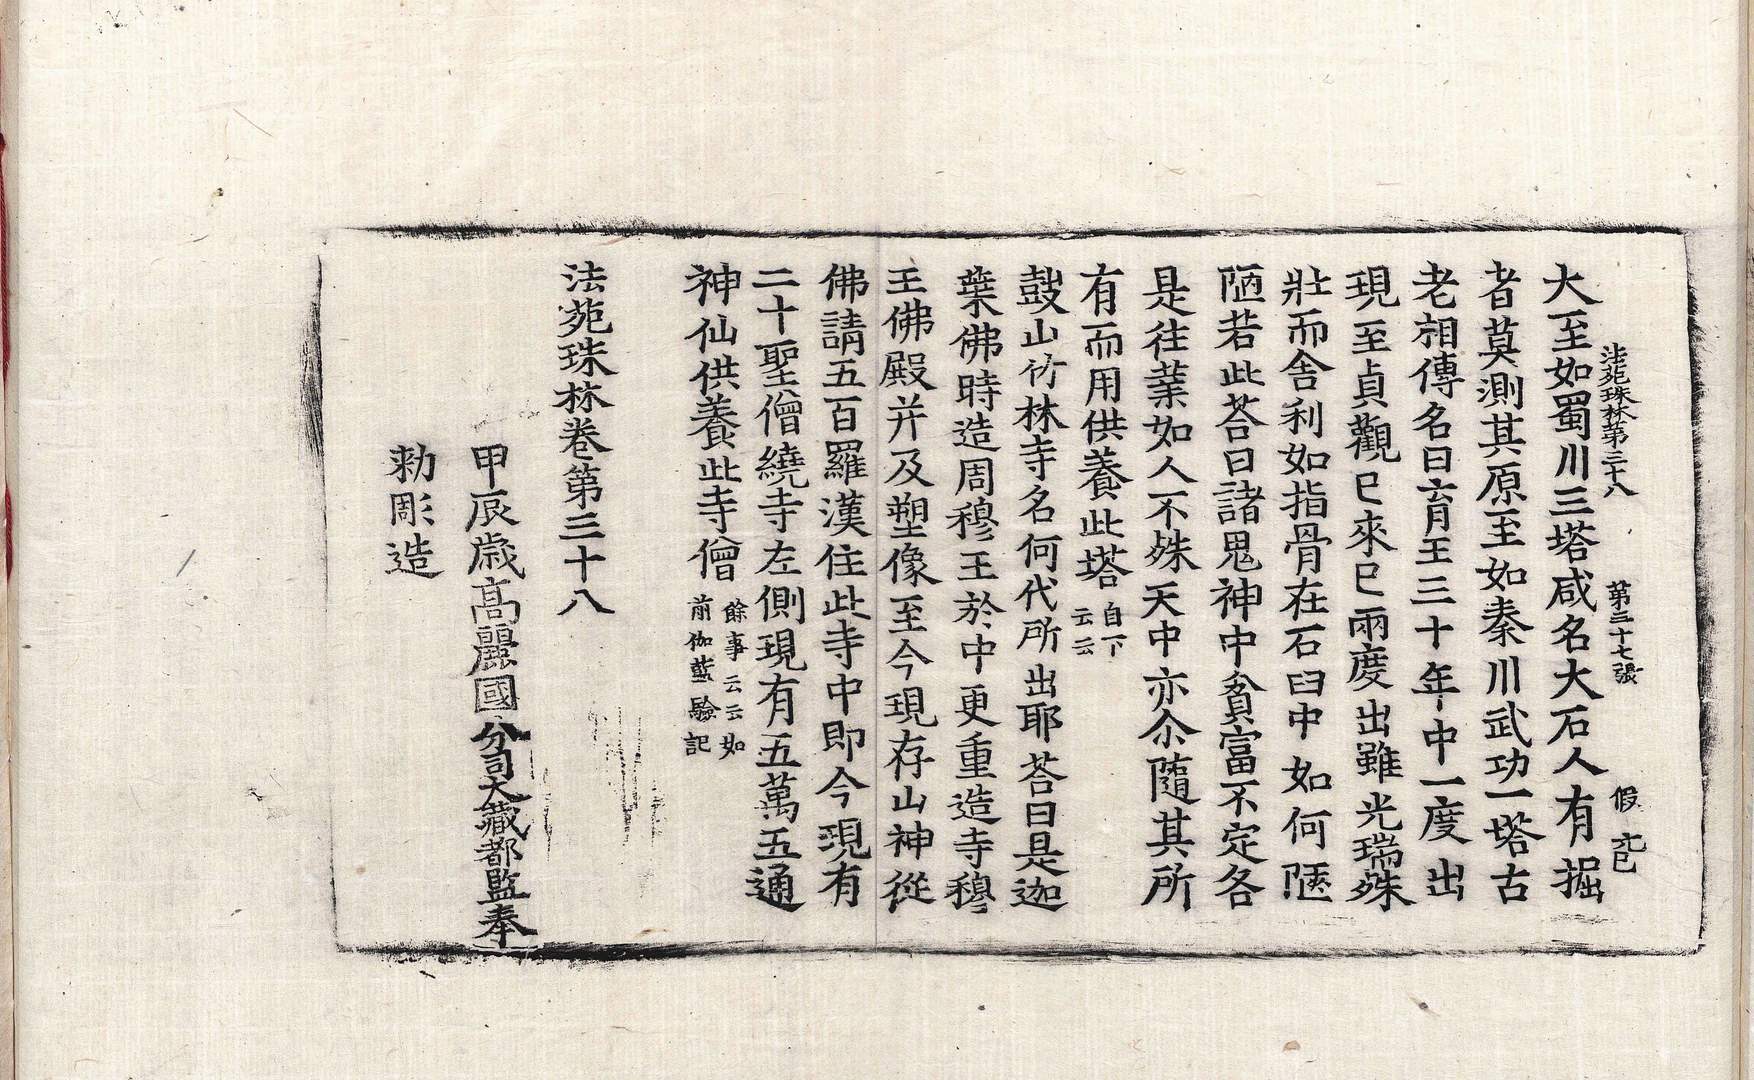 法苑珠林第三十八　第三十七張　假
大至如蜀川三塔咸名大石人有掘
者莫測其原至如秦川武功一塔古
老相傳名曰育王三十年中一度出
現至貞觀已來已兩度出雖光瑞殊
壯而舍利如指骨在石臼中如何陋
陋若此荅曰諸鬼神中貧富不定各
是往業如人不殊天中亦尒隨其所
有而用供養此塔自下云云
鼓山竹林寺名何代所出耶荅曰是迦
葉佛時造周穆王於中更重造寺穆
王佛殿并及塑像至今現存山神從
佛請五百羅漢住此寺中即今現有
二十聖僧繞寺左側現有五萬五通
神仙供養此寺僧餘事云云如前伽藍驗記
法苑珠林卷第三十八
甲辰歲高麗國分司大藏都監奉
勅彫造